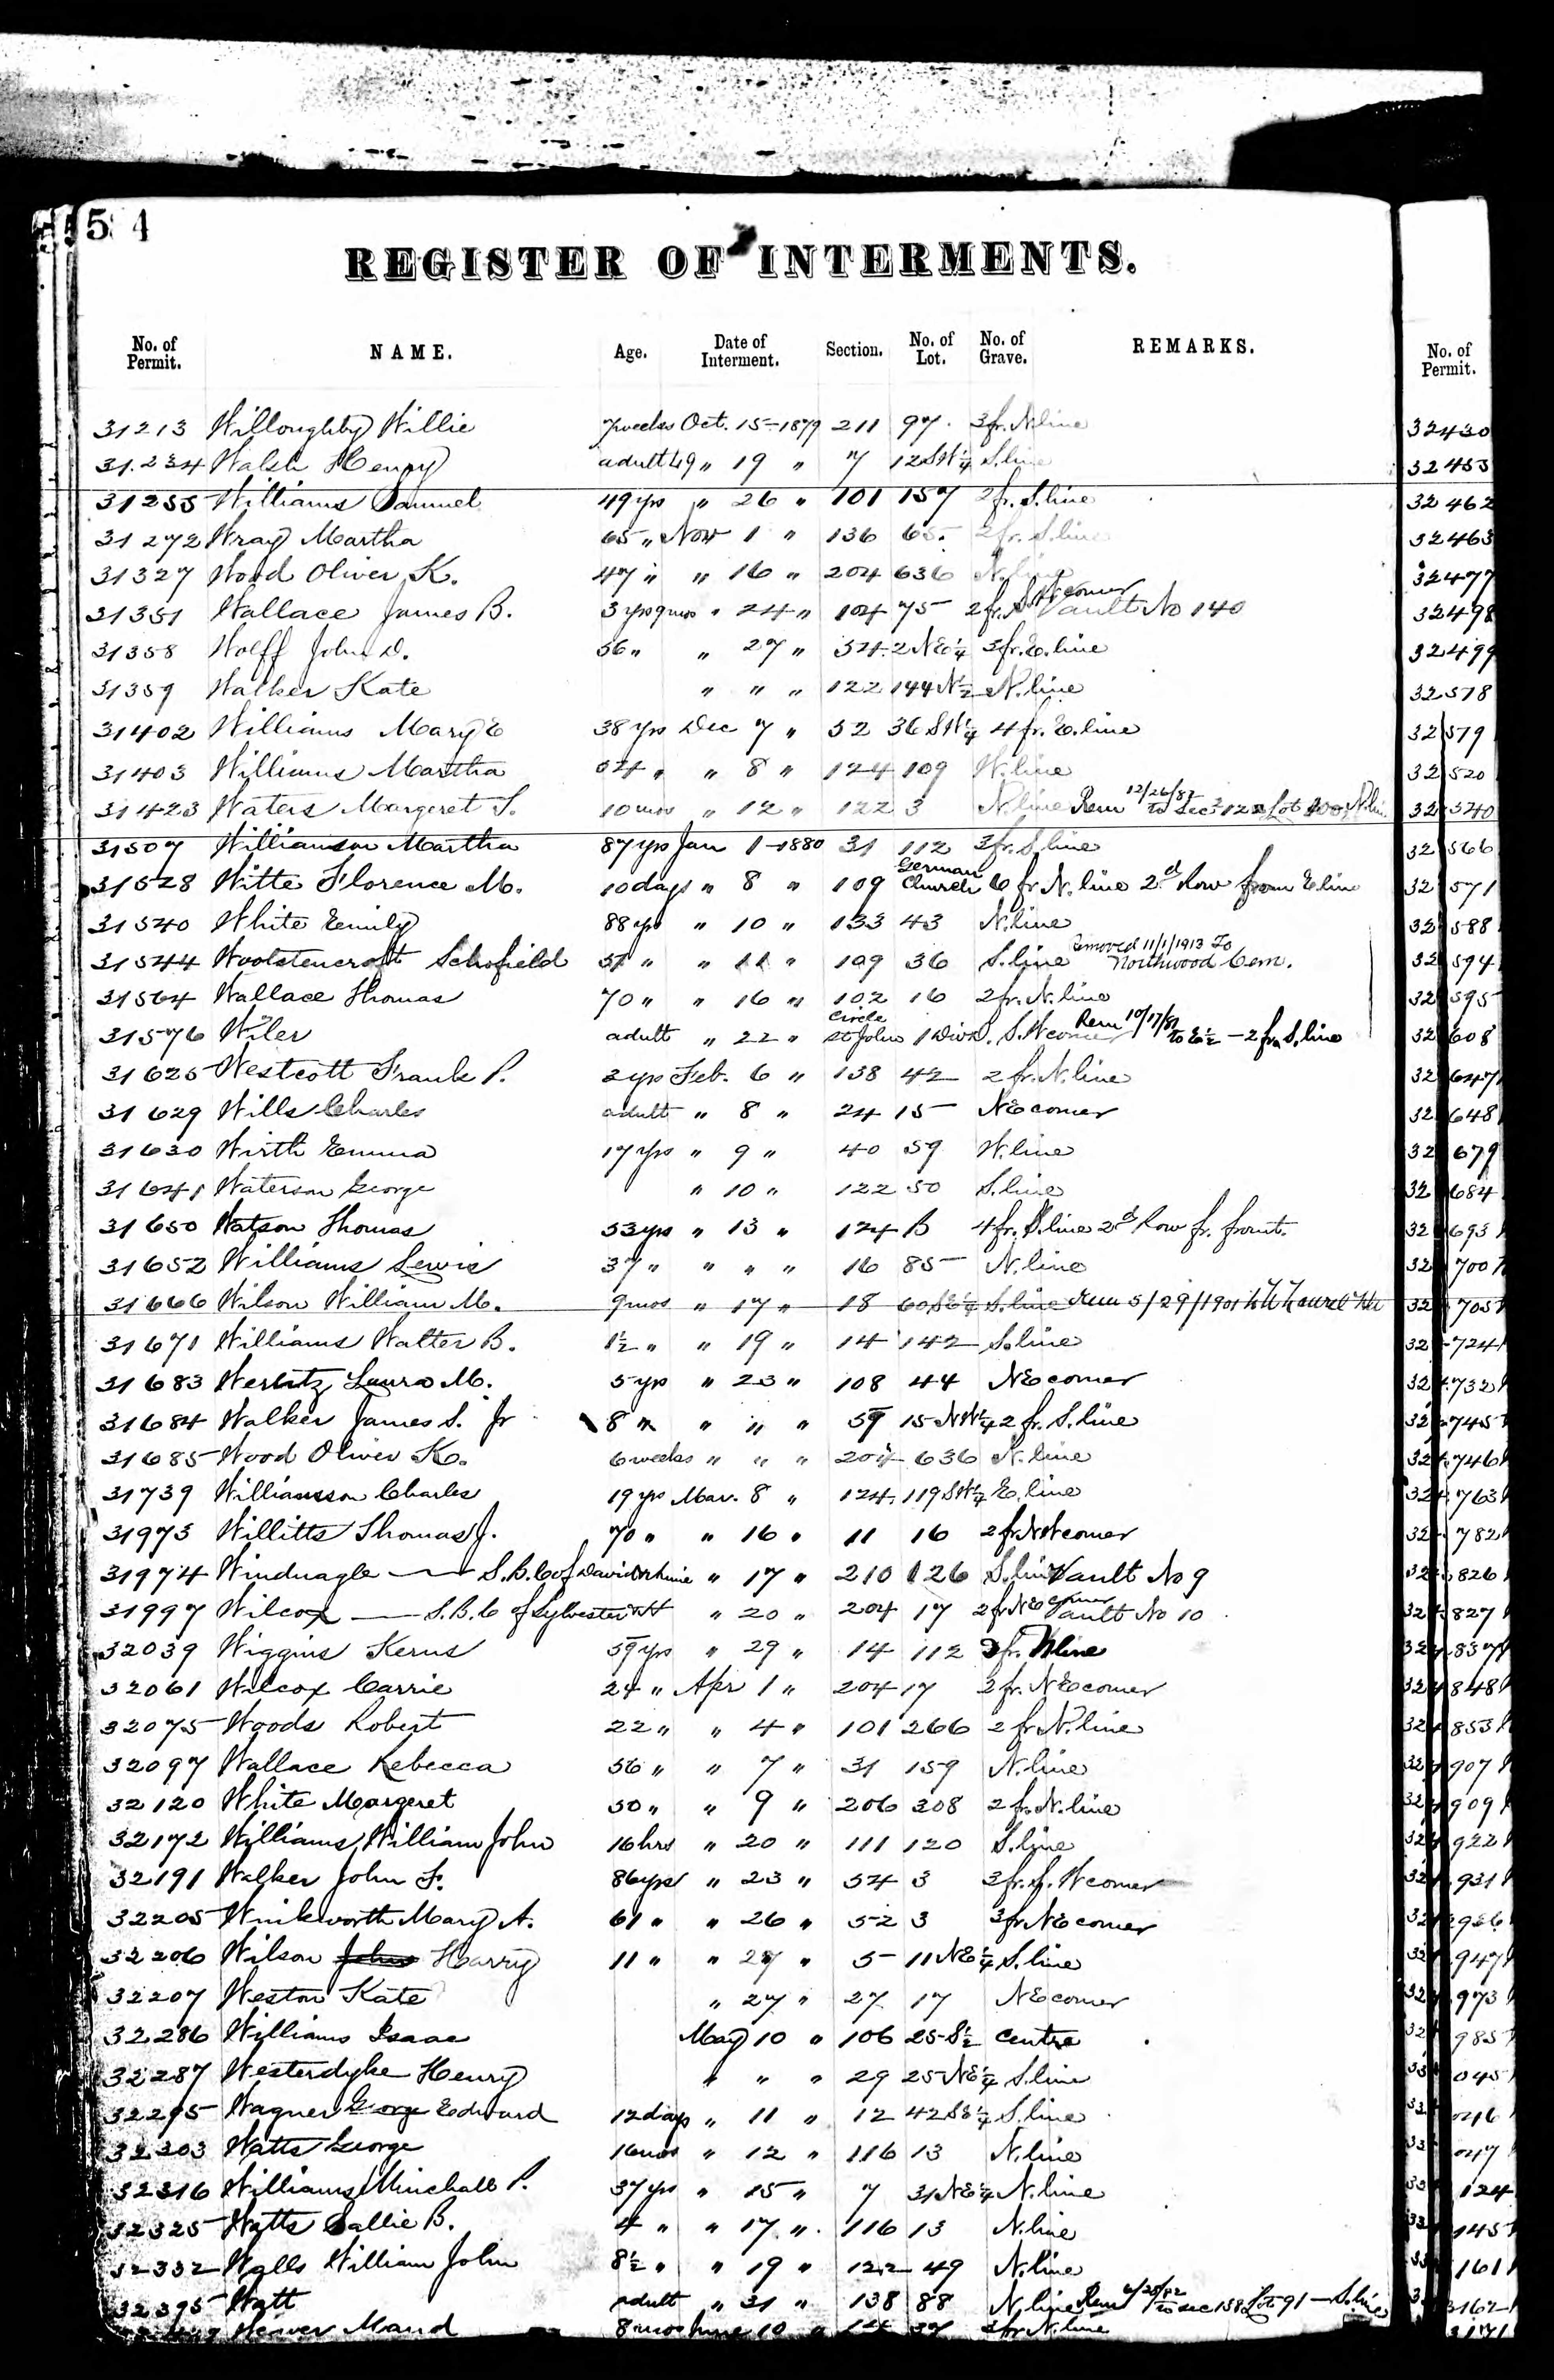 54
REGISTER OF INTERMENTS.
No. of Permit. NAME. Age. Date of Interment. Section. No. of Lot. No. of Grave. REMARKS. No. of Permit.
31213 Willoughby Willie 7 weeks Oct. 15 - 1879 211 97 3 fr. N. line 32430
31234 Walsh Henry adult 49 " 19 " 7 12 SW 1/4 S. line 32455
31255 Williams Samuel 49 yrs " 26 " 101 157 2 fr. S. line 32462
31272 Wray Martha 65 " Nov 1 " 136 65 2 fr. S. line 32463
31327 Wood Oliver K. 47 " " 16 " 204 636 N. line 32477
31351 Wallace James B. 3 yrs 9 mos " 24 " 104 75 2 fr. SW corner Vault No 140 32498
31358 Wolff John D. 56 " " 27 " 54 2 NE 1/4 3 fr. E. line 32499
31359 Walker Kate " " " 122 144 N 1/2 N. line 32518
31402 Williams Mary E 38 yrs Dec 7 " 52 36 SW 1/4 4 fr. E. line 32519
31403 Williams Martha 54 " " 8 " 124 109 W. line 32520
31423 Waters Margeret T. 10 mos " 12 " 122 3 N. line Rem 12/26/87 to Sec 122 Lot N. lin 32540
31507 Williamson Martha 87 yrs Jan 1 - 1880 31 112 3 fr. S. line 32566
31528 Witte Florence M. 10 days " 8 " 109 German Church 6 fr N. line 2d Row from E line 32571
31540 White Emily 88 yrs " 10 " 133 43 N. line 32588
31544 Woolstencroft Schofield 51 " " 11 " 109 36 S. line removed 11/1/1913 To Northwood Cem. 32594
31564 Wallace Thomas 70 " " 16 " 102 16 2 fr. N. line 32595
31576 Wiler adult " 22 " Circle St John 1 Div D. S. W corner Rem 10/17/81 to E 1/2 - 2 fr S. line 32608
31625 Westcott Frank P. 2 yrs Feb. 6 " 138 42 2 fr. N. line 32647
31629 Wills Charles adult " 8 " 24 15 NE corner 32648
31630 Wirth Emma 17 yrs " 9 " 40 59 W. line 32679
31641 Waterson George " 10 " 122 50 S. line 32684
31650 Watson Thomas 53 yrs " 13 " 124 B 4 fr. S. line 2d Row fr. front. 32693
31652 Williams Lewis 37 " " " " 16 85 N. line 32700
31666 Wilson William M. 9 mos " 17 " 18 60 SE 1/4 S. line Rem 5/29/1901 32705
31671 Williams Walter B. 1 1/2 " " 19 " 14 142 S. line 32724
31683 Laura M. 5 yrs " 23 " 108 44 NE corner 32732
31684 Walker James S. Jr 8 " " " " 59 15 NW 1/4 2 fr. S. line 32745
31685 Wood Oliver K. 6 weeks " " " 204 636 N. line 32746
31739 Williamson Charles 19 yrs Mar. 8 " 124 119 SW 1/4 E. line 32763
31973 Willitts Thomas J. 70 " " 16 " 11 16 2 fr NW corner 32782
31974 Windnagle — S.B.C of David " 17 " 210 126 S. line Vault No 9 32826
31997 Wilcox — S.B.C of Sylvester " 20 " 204 17 2 fr NE corner Vault No 10 32827
32039 Wiggins Kerns 59 yrs " 29 " 14 112 3 fr. N line 32837
32061 Wilcox Carrie 24 " Apr 1 " 204 17 2 fr. NE corner 32848
32075 Woods Robert 22 " " 4 " 101 266 2 fr N. line 32853
32097 Wallace Rebecca 56 " " 7 " 31 159 N. line 32907
32120 White Margeret 50 " " 9 " 206 208 2 fr. N. line 32909
32172 Williams William John 16 hrs " 20 " 111 120 S. line 32922
32191 Walker John F. 86 yrs " 23 " 54 3 3 fr. S. W corner 32931
32205 Winkworth Mary A. 61 " " 26 " 52 3 3 fr NE corner 32926
32206 Wilson John Harry 11 " " 27 " 5 11 NE 1/4 S. line 32947
32207 Weston Kate " 27 " 27 17 NE corner 32973
32286 Williams Isaac May 10 " 106 25 S 1/2 Centre 32985
32287 Westerdyke Henry " " " 29 25 NE 1/4 S. line 33045
32295 Wagner George Edward 12 days " 11 " 12 42 SE 1/4 S. line 33046
32303 Watts George 16 mos " 12 " 116 13 N. line 33047
32316 Williams Minchall P. 37 yrs " 15 " 7 31 NE 1/4 N. line 33124
32325 Watts Callie B. 4 " " 17 " 116 13 N. line 33145
32332 Walls William John 8 1/2 " " 19 " 122 49 N. line 33161
32395 Watt adult " 31 " 138 88 N. line Rem 6/28/82 to Sec 138 Lot 91 - S. line 33162
Weaver Maud 8 mos June 10 " 14 37 2 fr N. line